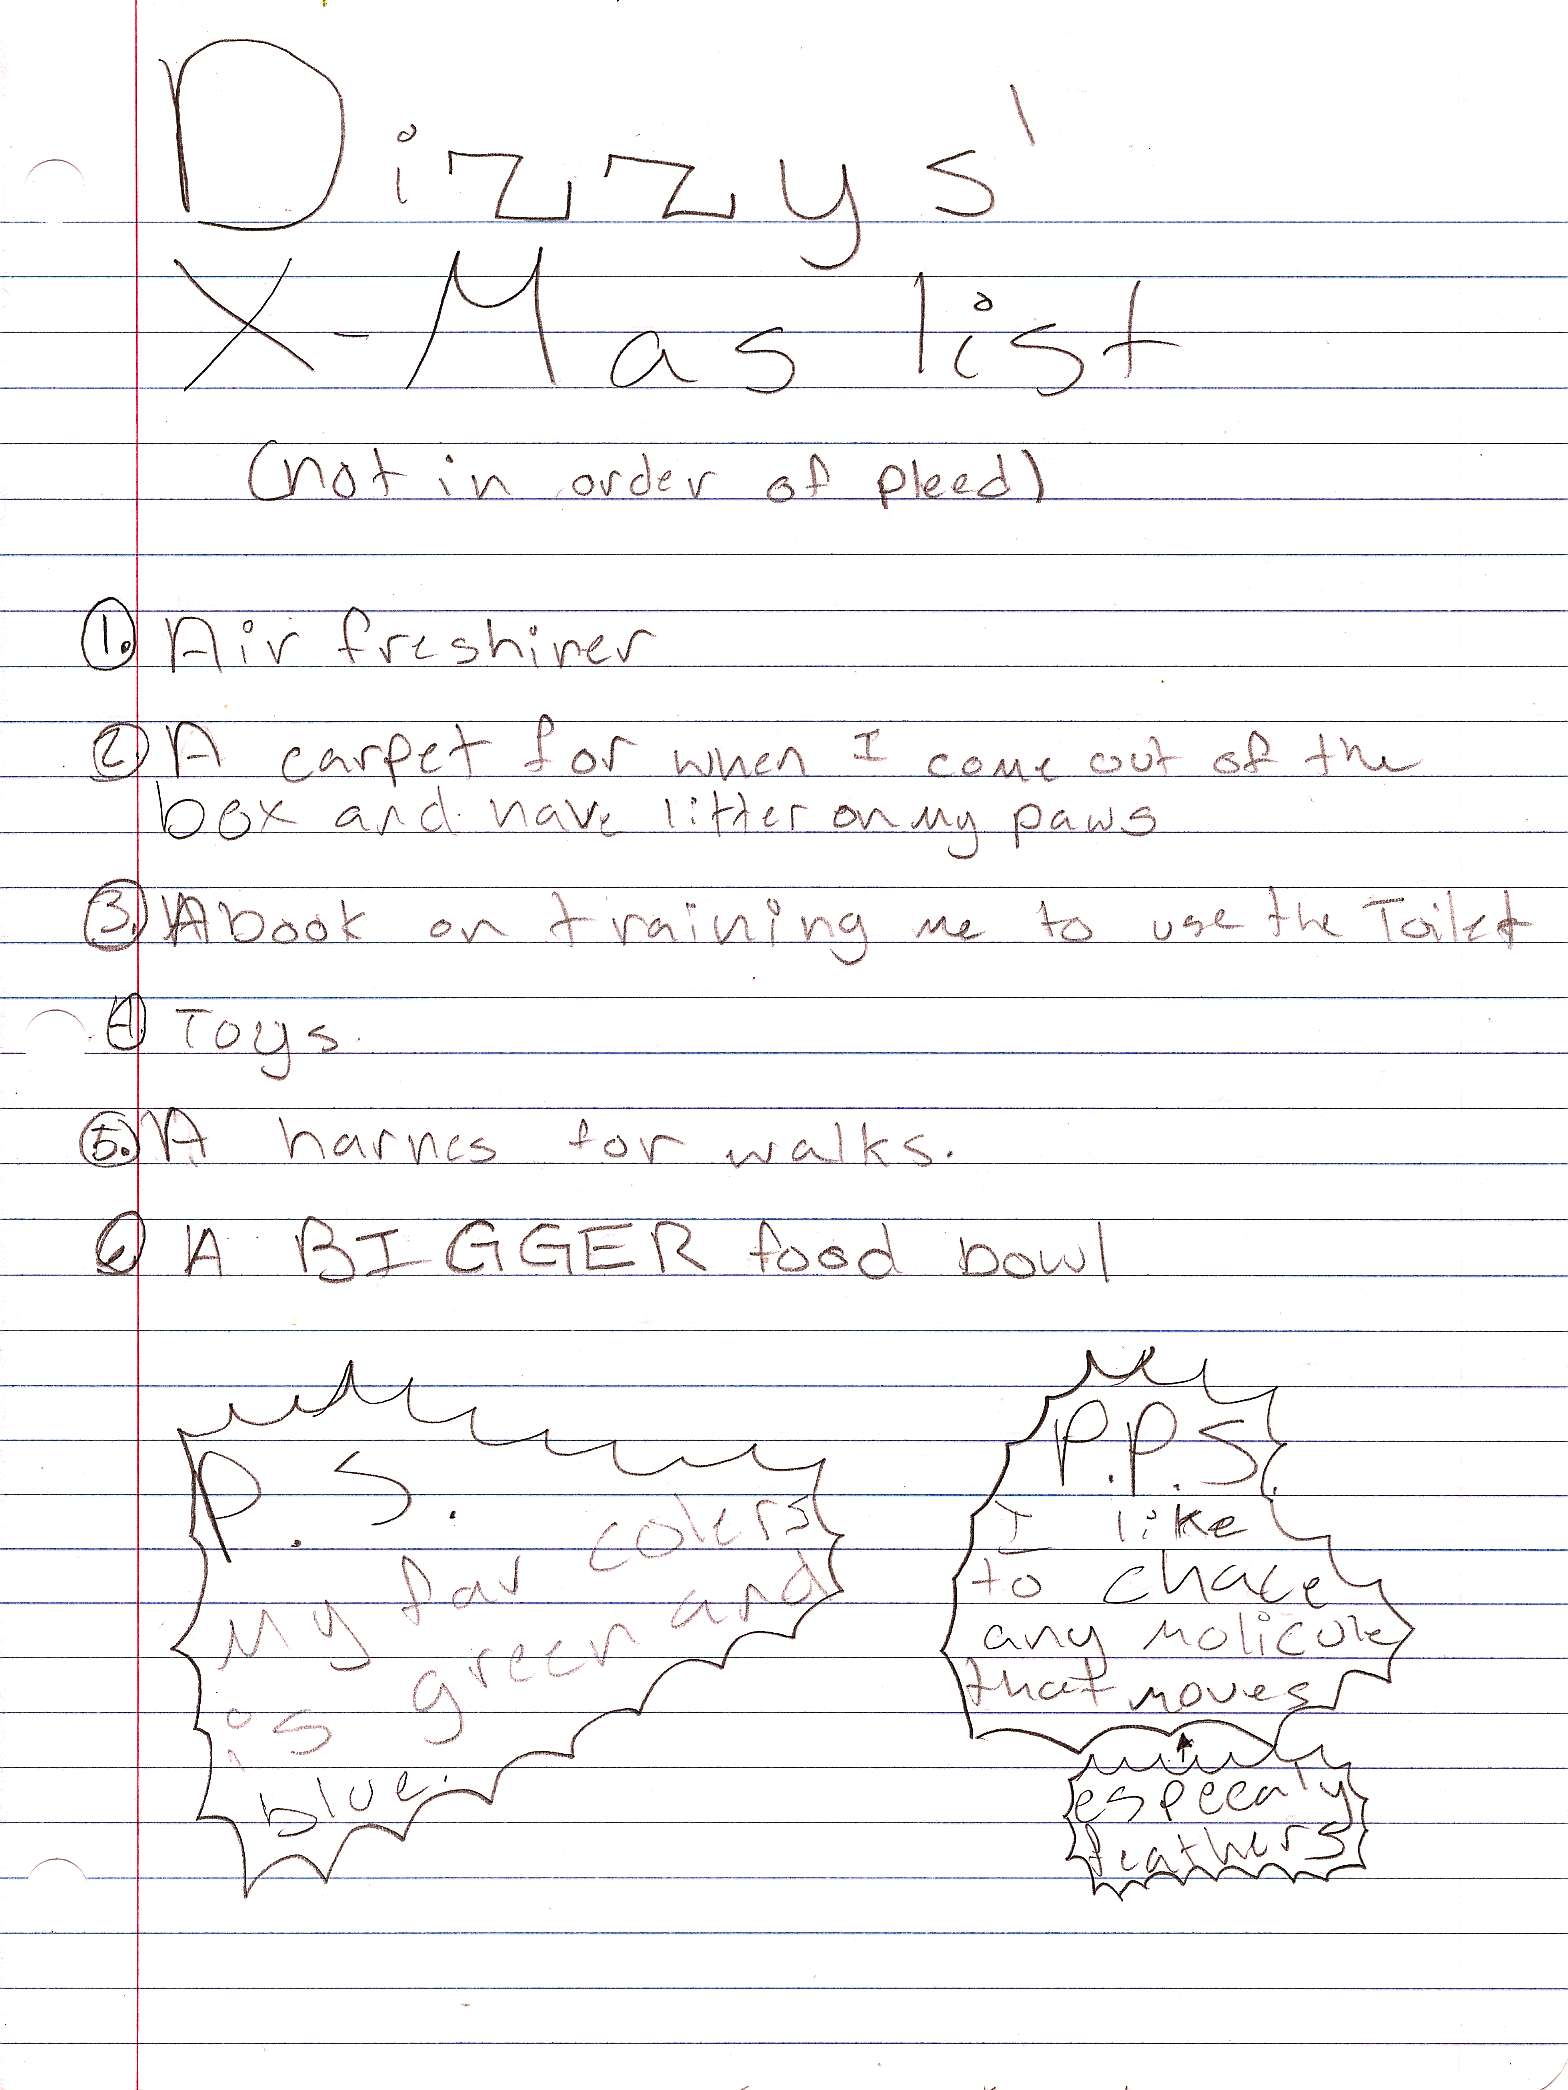 Dizzys'
X-Mas list
(not in order of pleed)
1. Air freshiner
2. A carpet for when I come out of the
box and have litter on my paws
3. A book on training me to use the Toilet
4 Toys.
5. A harnes for walks.
6 A BIGGER food bowl
P.S.
My fav colers
is green and
blue.
P.P.S.
I like
to chace
any molicule
that moves
especaly
feathers